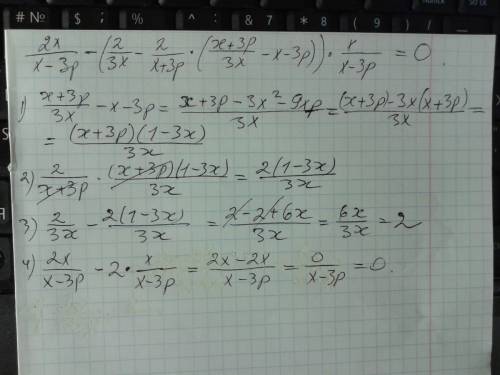 2x/(x-3p) - (2/3x - 2/(x+3p) · ((x+3p)/3x - x-3p)) · x/(x-3p) = 0.
1) (x+3p)/3x - x-3p = (x+3p-3x²-9xp)/3x = ((x+3p)-3x(x+3p))/3x =
= (x+3p)(1-3x)/3x
2) 2/(x+3p) · (x+3p)(1-3x)/3x = 2(1-3x)/3x
3) 2/3x - 2(1-3x)/3x = (2-2+6x)/3x = 6x/3x = 2
4) 2x/(x-3p) - 2 · x/(x-3p) = (2x-2x)/(x-3p) = 0/(x-3p) = 0.